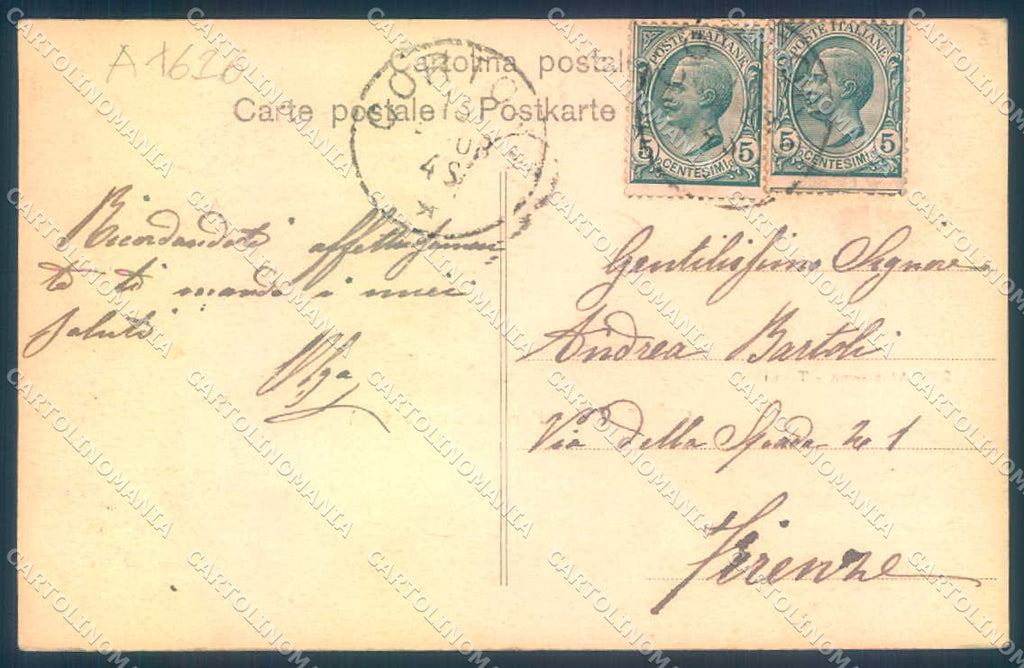 A 1626
Cartolina postale
Carte postale Postkarte
POSTE ITALIANE
5 CENTESIMI 5
POSTE ITALIANE
5 CENTESIMI 5
Ricordandoti affettuosamen-
te ti mando i miei
saluti
Olga
Gentilissimo Signore
Andrea Bartoli
Via della Spada N 1
Firenze
CARTOLINOMANIA